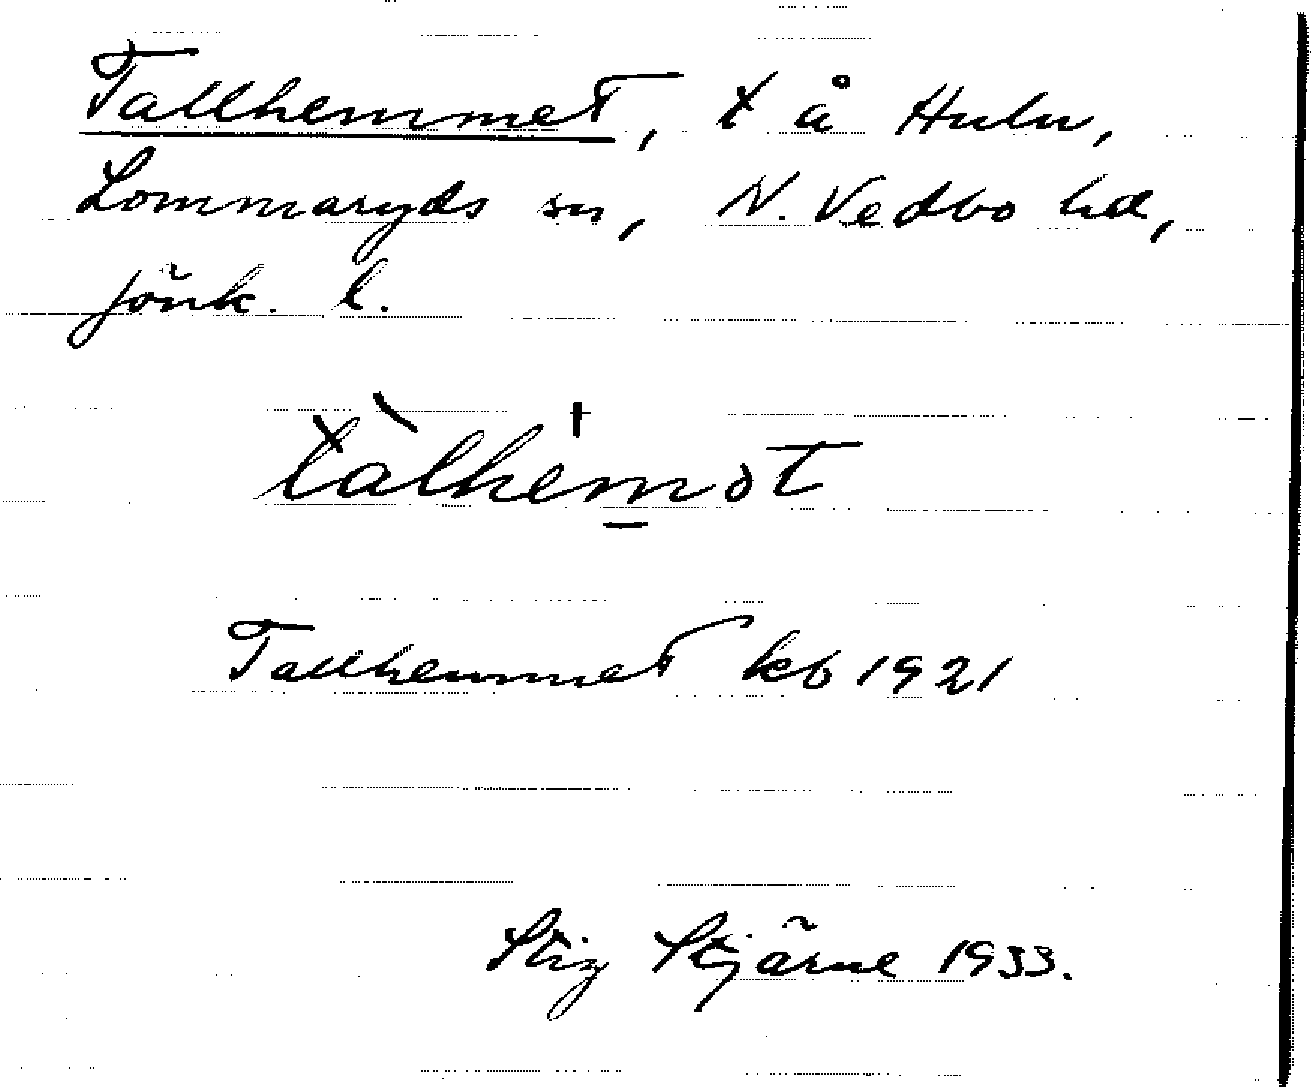 Tallhemmet, t å Hulu,
Lommaryds sn, N. Vedbo hd,
Jönk. l.
tàlhem̱ət
Tallhemmet kb 1921
Stig Stjärne 1933.